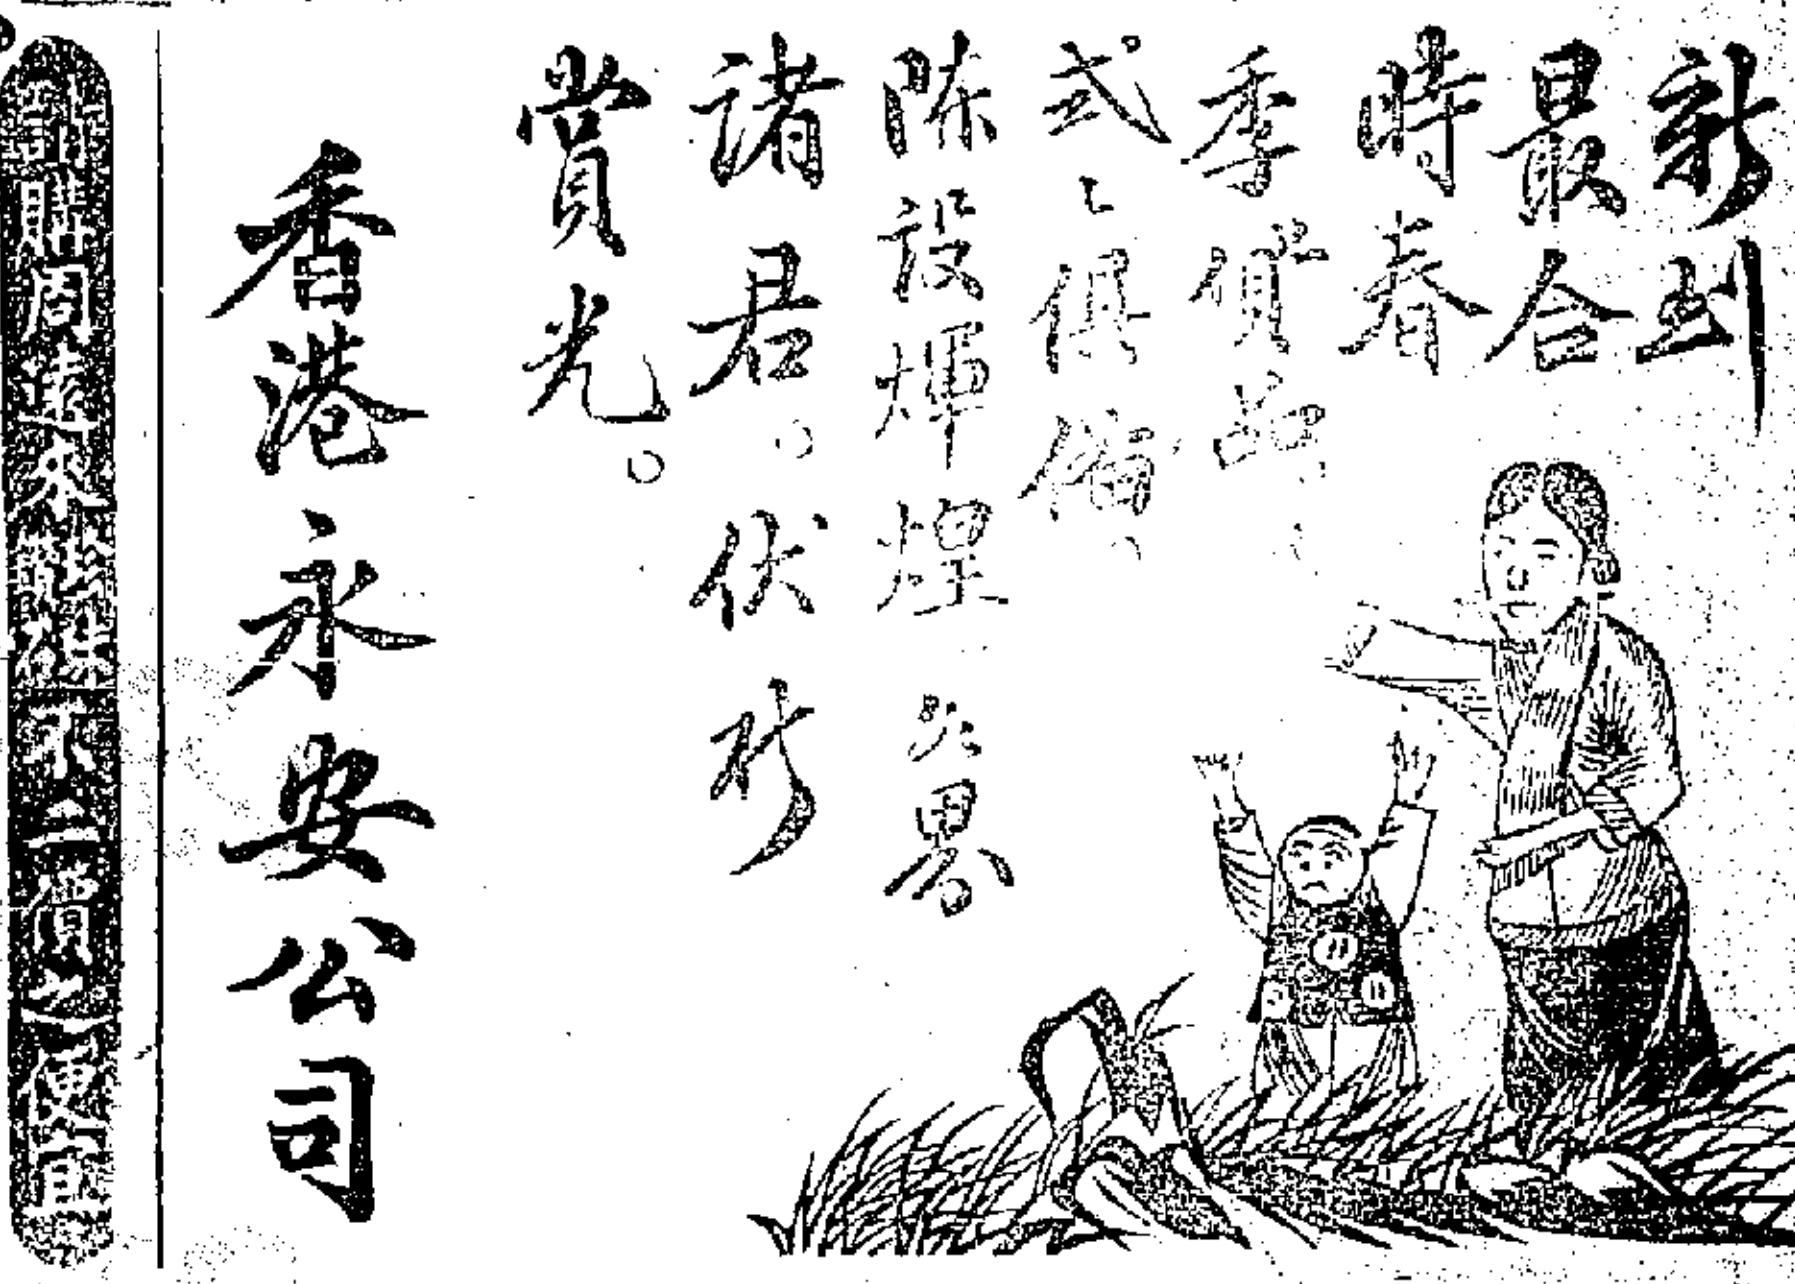 新到
最合
時春
季貨品
式〻俱備。
陳設輝煌
諸君。伏祈
賞光。
香港永安公司
不二價